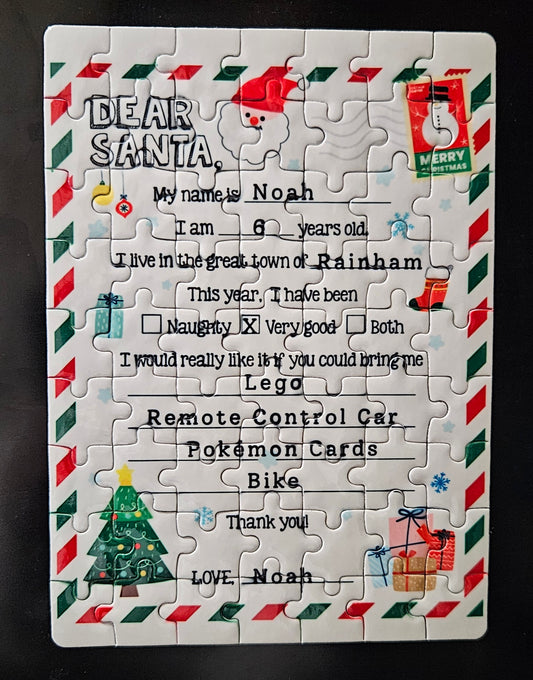 DEAR
SANTA,
MERRY
CHRISTMAS
My name is Noah
I am 6 years old.
I live in the great town of Rainham
This year, I have been
Naughty X Very good Both
I would really like it if you could bring me
Lego
Remote Control Car
Pokémon Cards
Bike
Thank you!
LOVE, Noah